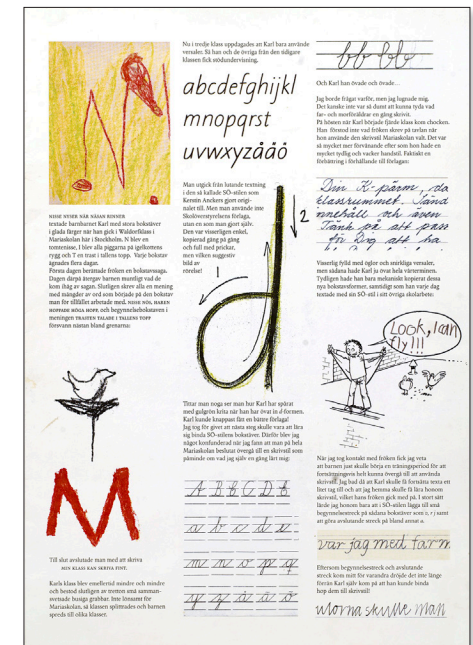 NISSE NYSER NÄR NÄSAN RINNER
textade barnhacket Karl med stora bokstäver
i glada färger när han gick i Waldorfklass i
Mariaskolan här i Stockholm. N blev en
tomtenisse, I blev alla piggarna på igelkottens
rygg och T en trast i tallens topp. Varje bokstav
ägnades flera dagar.
Första dagen berättade fröken en bokstavssaga.
Dagen därpå återgav barnen muntligt vad de
kom ihåg av sagan. Slutligen skrev alla en mening
med mängder av ord som började på den bokstav
man för tillfället arbetade med.
HOPPADE HÖGA HOPP, och begynnelsebokstaven i
meningen TRASTEN TALADE I TALLENS TOPP
försvann nästan bland grenarna:
M
Till slut avslutade man med att skriva
MIN KLASS KAN SKRIVA FINT.
Karls klass blev emellertid mindre och mindre
och bestod slutligen av tretton små samman-
svetsade busiga grabbar. Inte lönsamt för
Mariaskolan, så klassen splittrades och barnen
spreds till olika klasser.
Nu i tredje klass uppdagades att Karl bara använde
versaler. Så han och de övriga från den tidigare
klassen fick stödundervisning.
abcdefghijkl
mnopqrst
uvwxyzåäö
Man utgick från lutande textning
i den så kallade SÖ-stilen som
Kerstin Anckers gjort origi-
nalet till. Men man använde inte
Skolöverstyrelsens förlaga,
utan en som man gjort själv.
Den var visserligen enkel,
kopierad gång på gång
och full med prickar,
men vilken suggestiv
bild av
rörelse!
1
2
d
Tittar man noga ser man hur Karl har spårat
med gulgrön krita när han har övat in d-formen.
Karl kunde knappast fått en bättre förlaga!
Jag tog för givet att nästa steg skulle vara att lära
sig binda SÖ-stilens bokstäver. Därför blev jag
något konfunderad när jag fann att man på hela
Mariaskolan beslutat övergå till en skrivstil som
påminde om vad jag själv en gång lärt mig:
A B C D E
a b c d e
m n o p q
y z å ä ö
Och Karl han övade och övade…
Jag borde frågat varför, men jag lugnade mig.
Det kunde inte var så dumt att kunna tyda vad
far- och morföräldrar en gång skrivit.
På hösten när Karl började fjärde klass kom chocken.
Han förstod inte vad fröken skrev på tavlan när
hon använde den skrivstil Mariaskolan valt. Det var
så mycket mer förvånande eftersom hon hade en
mycket tydlig och vacker handstil. Faktiskt en
förbättring i förhållande till förlagan:
Din K-pärm, da
klassrummet. Tänd
innehåll och även
Tänk på att pass
för Dig att ha
Visserlig fylld med öglor och snirkliga versaler,
men sådana hade Karl ju övat hela vårterminen.
Tydligen hade han bara mekaniskt kopierat dessa
nya bokstavsformer, samtidigt som han varje dag
textade med sin SÖ-stil i sitt övriga skolarbete:
Look, I can
fly!!!
När jag tog kontakt med fröken fick jag veta
att barnen just skulle börja en träningsperiod för att
fortsättningsvis helt kunna övergå till att använda
skrivstil. Jag bad då att Karl skulle få fortsätta texta ett
litet tag till och att jag hemma skulle få lära honom
skrivstil, vilket hans fröken gick med på. I stort sätt
lärde jag honom bara att i SÖ-stilen lägga till små
begynnelsestreck på sådana bokstäver som i, r j samt
att göra avslutande streck på bland annat a:
var jag med farm
Eftersom begynnelsestreck och avslutande
streck kom mitt för varandra dröjde det inte länge
förrän Karl själv kom på att han kunde binda
ihop dem till skrivstil!
utorna skulle man